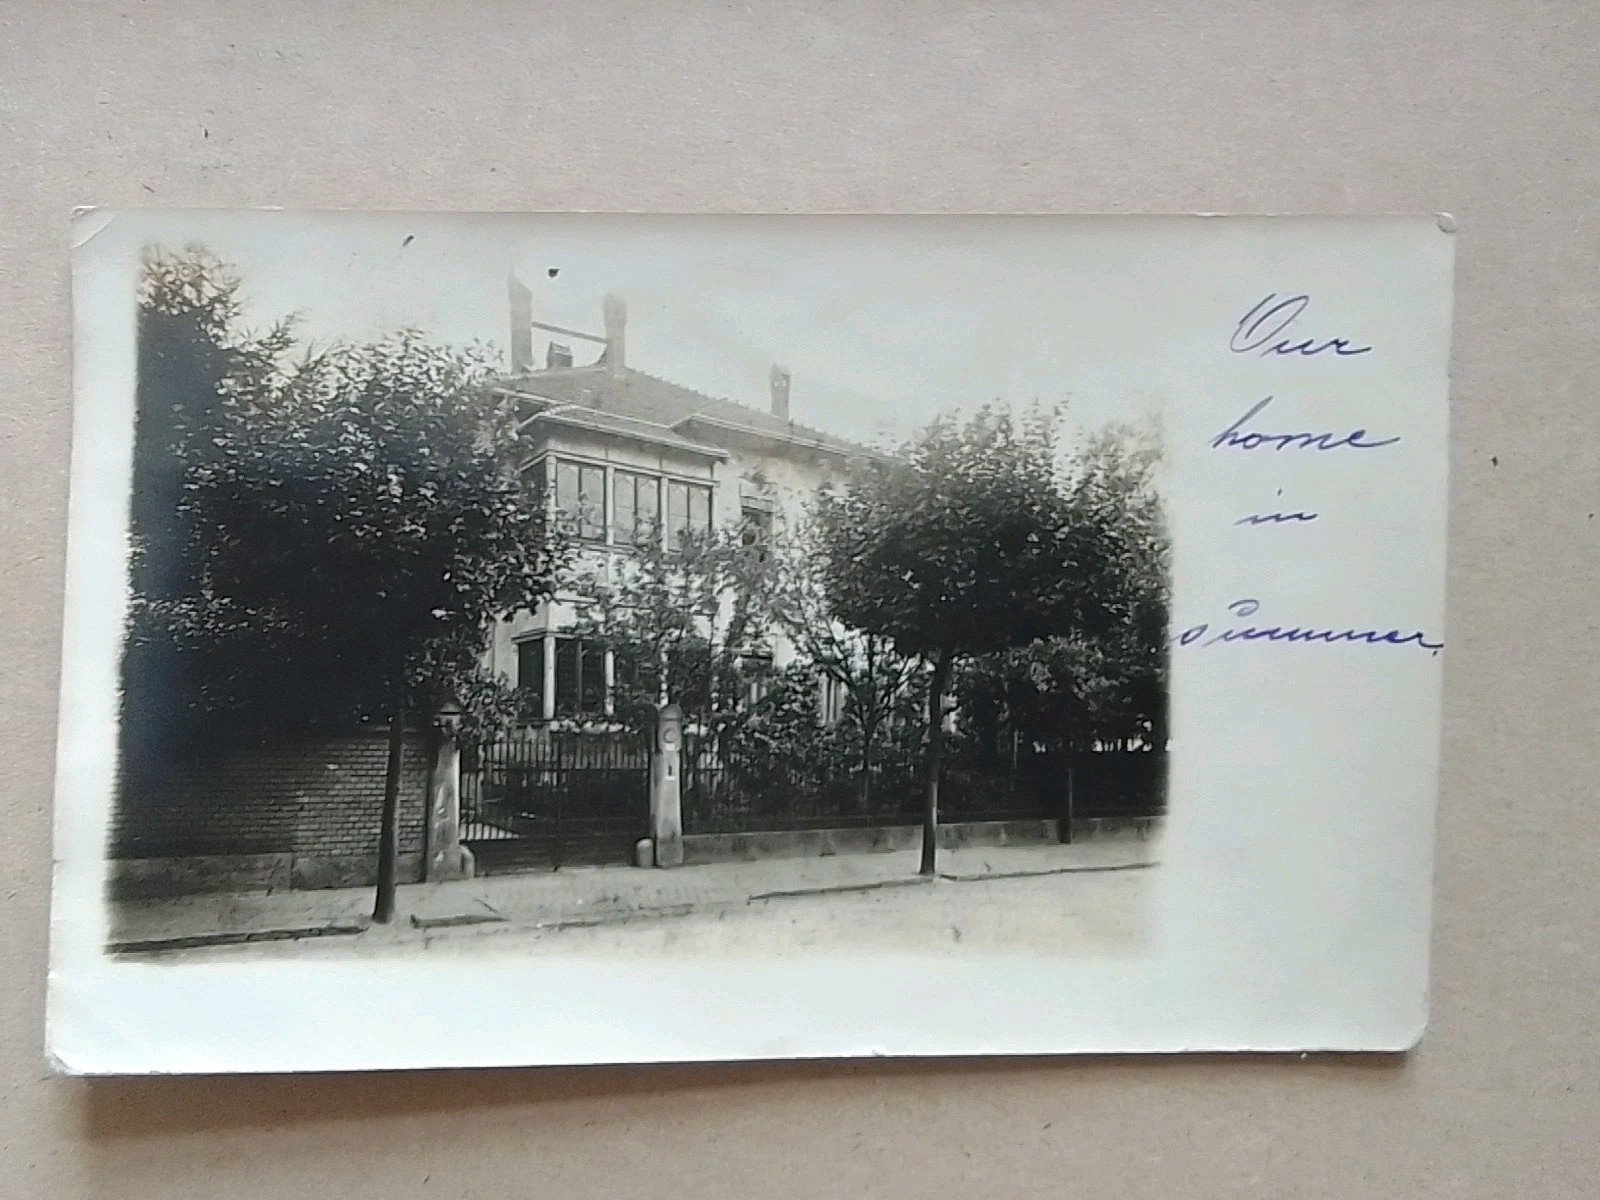 Our
home
in
Summer.